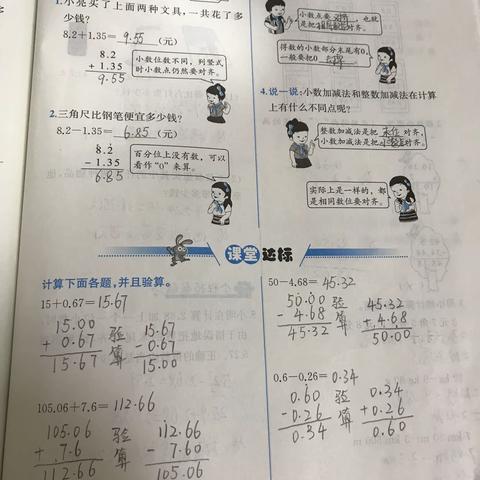 1.小亮买了上面两种文具,一共花了多
少钱?
8.2+1.35= 9.55 (元)
8.2
+ 1.35
9.55
小数位数不同,列竖式
时小数点仍然要对齐。
2.三角尺比钢笔便宜多少钱?
8.2-1.35= 6.85 (元)
8.2
- 1.35
6.85
百分位上没有数,可以
看作“0”来算。
小数点要对齐,也就
是把相同数位对齐。
得数的小数部分末尾有0,
一般要把0 去掉
4.说一说:小数加减法和整数加减法在计算
上有什么不同点呢?
整数加减法是把末位对齐,
小数加减法是把小数点对齐。
实际上是一样的,都
是相同数位要对齐。
课堂达标
计算下面各题,并且验算。
15+0.67=15.67
15.00
+ 0.67
15.67
验算
15.67
-0.67
15.00
105.06+7.6= 112.66
105.06
+ 7.6
112.66
验算
112.66
- 7.60
105.06
50-4.68= 45.32
50.00
- 4.68
45.32
验算
45.32
+ 4.68
50.00
0.6-0.26= 0.34
0.60
-0.26
0.34
验算
0.34
+0.26
0.60